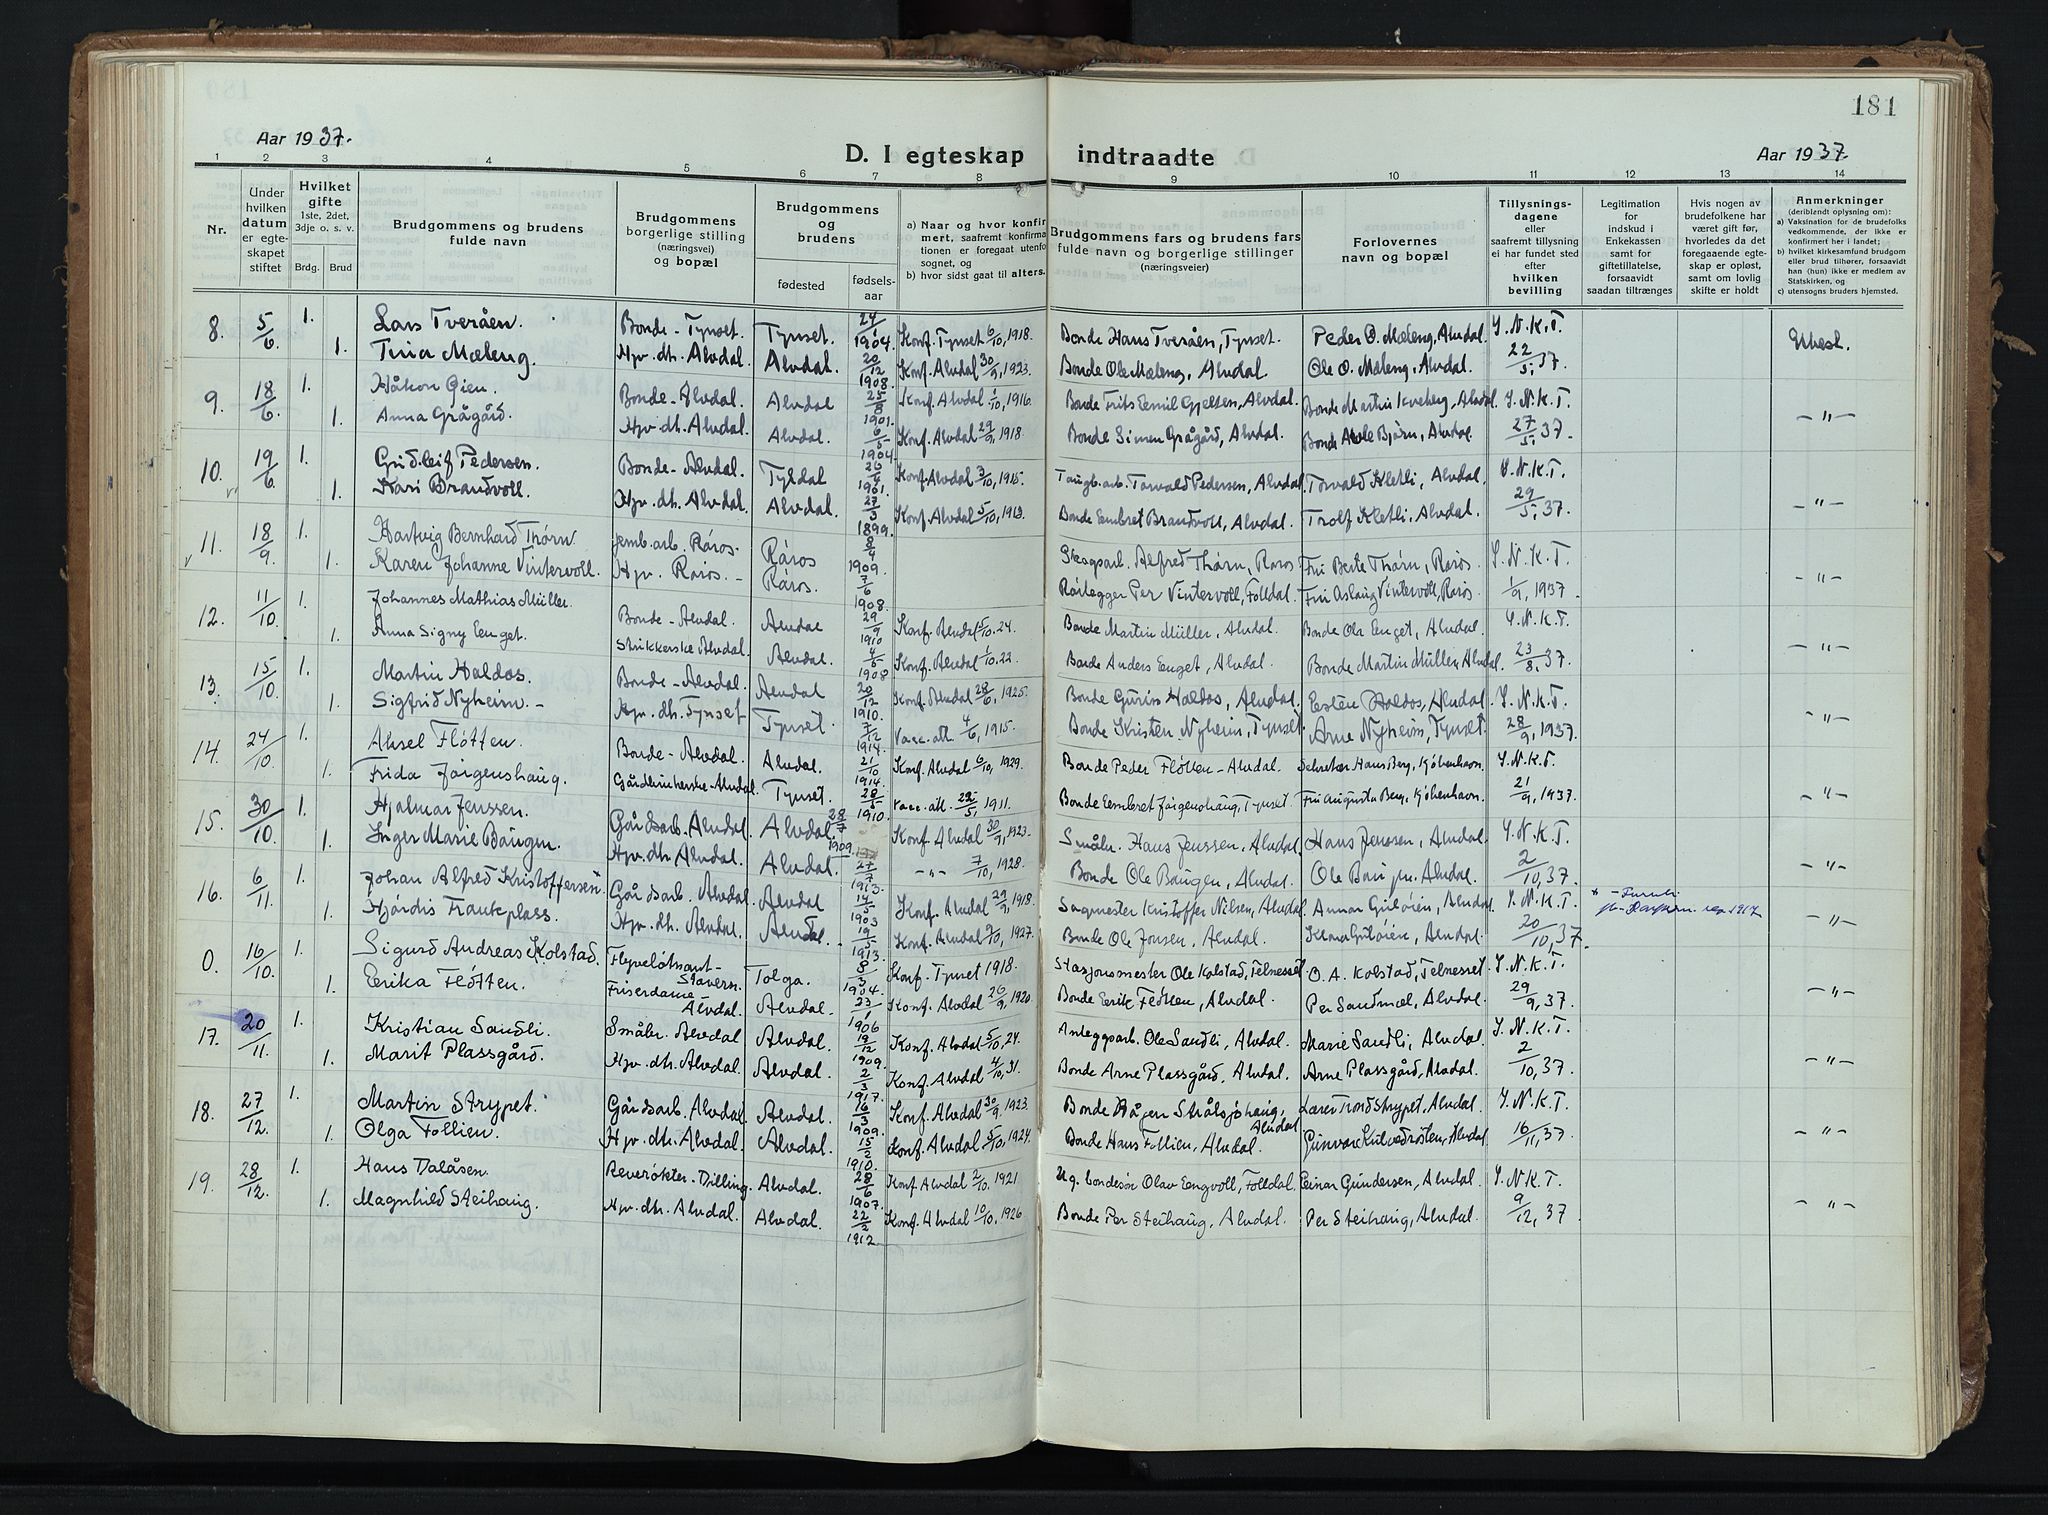 181
Aar 1937.
D. I egteskap indtraadte
Aar 1937.
1 2 3 4 5 6 7 8 9 10 11 12 13 14
Nr.
Under hvilken datum er egteskapet stiftet
Hvilket gifte 1ste, 2det, 3dje o. s. v.
Brdg. Brud
Brudgommens og brudens fulde navn
Brudgommens borgerlige stilling (næringsvei) og bopæl
Brudgommens og brudens
fødested fødselsaar
a) Naar og hvor konfirmert, saafremt konfirmationen er foregaat utenfor sognet, og
b) hvor sidst gaat til alters.
Brudgommens fars og brudens fars fulde navn og borgerlige stillinger (næringsveier)
Forlovernes navn og bopæl
Tillysningsdagene eller saafremt tillysning ei har fundet sted efter hvilken bevilling
Legitimation for indskud i Enkekassen samt for giftetillatelse, forsaavidt saadan tiltrænges
Hvis nogen av brudefolkene har været gift før, hvorledes da det foregaaende egteskap er opløst, samt om lovlig skifte er holdt
Anmerkninger (deriblandt oplysning om):
a) Vaksination for de brudefolks vedkommende, der ikke er konfirmert her i landet;
b) hvilket kirkesamfund brudgom eller brud tilhører, forsaavidt han (hun) ikke er medlem av Statskirken, og
c) utensogns bruders hjemsted.
8. 5/6 1. Lars Tveråen. Bonde - Tynset. Tynset 24/1 1904. Konf. Tynset 6/10, 1918. Bonde Hans Tveråen, Tynset. Peder O. Mæleng, Alvdal. S.N.K.T.
1. Tina Mæleng. Hjv. dh. Alvdal. Alvdal. 20/12 1908. Konf. Alvdal 30/9, 1923. Bonde Ole Mæleng, Alvdal Ole O. Mæleng, Alvdal. 22/5, 37.
9. 18/6 1. Håkon Gien. Bonde - Alvdal. Alvdal 25/8 1901. Konf. Alvdal 1/10, 1916. Bonde Frits Emil Gjelten, Alvdal. Bonde Martin Kveberg, Alvdal S.N.K.T.
1. Anna Grågård. Hjv. dh. Alvdal. Alvdal. 6/5 1904. Konf. Alvdal 29/9, 1918. Bonde Simen Grågård, Alvdal. Bonde Bjørn, Alvdal. 27/5, 37. - " -
10. 19/6 1. Gudleif Pedersen. Bonde - Alvdal. Tyldal 26/4 1901. Konf. Alvdal 3/10, 1915. Torvald Pedersen, Alvdal. Torvald Kletli, Alvdal. S.N.K.T.
1. Kari Brandvoll. Hjv. dh. Alvdal. Alvdal. 27/3 1899. Konf. Alvdal 5/10, 1913. Bonde Embret Brandvoll, Alvdal. Trolf Kletli, Alvdal. 29/5, 37. - " -
11. 18/9 1. Hartvig Bernhard Thørn. Jernb. arb. Røros. Røros 8/4 1909. Skogsarb. Alfred Thørn, Røros Fru Berte Thørn, Røros. S.N.K.T.
1. Karen Johanne Vintervoll. Hjv. Røros. - Røros. 7/6 1908. Rørlegger Per Vintervoll, Folldal. Fru Aslaug Vintervoll, Røros. 1/9, 1937 - " -
12. 11/10 1. Johannes Mathias Müller. Bonde - Alvdal. Alvdal 29/9 1910 Konf. Alvdal 5/10. 24. Bonde Martin Müller, Alvdal. Bonde Ola Eenget, Alvdal. S.N.K.T.
1. Anna Signy Eenget. Strikkerske Alvdal. Alvdal. 4/5 1908 Konf. Alvdal 1/10. 22. Bonde Anders Eenget, Alvdal. Bonde Martin Müller, Alvdal. 23/8, 37. - " -
13. 15/10 1. Martin Haldos. Bonde - Alvdal. Alvdal 20/12 1910. Konf. Alvdal 28/6, 1925. Bonde Gurim Haldos, Alvdal. Esten Haldos, Alvdal. S.N.K.T.
1. Sigfrid Nyheim. - Hjv. dh. Tynset Tynset. 7/12 1914. Vacc. att. 4/6, 1915. Bonde Kristen Nyheim, Tynset. Arne Nyheim, Tynset. 28/9, 1937. - " -
14. 24/10 1. Aksel Fløtten. Bonde - Alvdal. Alvdal. 21/10 1914. Konf. Alvdal 6/10, 1929. Bonde Peder Fløtten - Alvdal. Sekretær Hans Berg, København. S.N.K.T.
1. Frida Jørgenshaug. Alvdal. Tynset. 28/5 1910. Vacc. att. 22/5, 1911. Bonde Embret Jørgenshaug, Tynset. Fru Augusta Berg, København. 21/9, 1937. - " -
15. 30/10 1. Hjalmar Jenssen. Gårdsarb. Alvdal. Alvdal. 28/7 1909. Konf. Alvdal 30/9, 1923. Småbr. Hans Jenssen, Alvdal. Hans Jenssen, Alvdal. S.N.K.T.
1. Inger Marie Baugen. Hjv. dh. Alvdal. Alvdal. 27/7 1913. - " - 7/10, 1928. Bonde Ole Baugen, Alvdal. Ole Alvdal. 2/10, 37. - " -
16. 6/11 1. Johan Alfred Kristoffersen Gårdsarb. Alvdal. Alvdal 14/5 1903 Konf. Alvdal 29/9, 1918. Sagmester Kristoffer Nilsen, Alvdal. Annar Alvdal. S.N.K.T.
1. Hjørdis Trauteplass. Hjv. dh. Alvdal. Alvdal. 19/5 1913. Konf. Alvdal 9/10, 1927. Bonde Ole Jonsen, Alvdal. Alvdal. 20/10, 37. - " -
0. 16/10 1. Sigurd Andreas Kolstad. Flyveløtnant - Stavern. Tolga. 8/3 1904 Konf. Tynset 1918. Stasjonsmester Ole Kolstad, Telneset O. A. Kolstad, Telneset. S.N.K.T.
1. Erika Fløtten. Friserdame - Alvdal. Alvdal. 23/1 1906 Konf. Alvdal 26/9, 1920. Bonde Eerik Fløtten, Alvdal. Per Sandmæl, Alvdal. 29/9, 37. - " -
17. 20/11. 1. Kristian Sandli. Småbr. Alvdal Alvdal. 19/12 1909. Konf. Alvdal 5/10. 24. Anleggsarb. Ole Sandli, Alvdal. Marie Sandli, Alvdal. S.N.K.T.
1. Marit Plassgård. Hjv. dh. Alvdal. Alvdal. 2/3 1917. Konf. Alvdal 4/10, 31. Bonde Arne Plassgård, Alvdal. Arne Plassgård, Alvdal. 2/10, 37. - " -
18. 27/12. 1. Martin Strypet. Gårdsarb. Alvdal Alvdal. 16/3 1909. Konf. Alvdal 30/9. 1923. Bonde Hågen Strålsjøhaug, Alvdal Lærer Trond Strypet, Alvdal. S.N.K.T.
1. Olga Follien. Hjv. dh. Alvdal. Alvdal. 15/2 1910. Konf. Alvdal 5/10, 1924. Bonde Hans Follien, Alvdal. Gunvor Alvdal. 16/11, 37. - " -
19. 28/12. 1. Hans Dalåsen. Reverøkter - Dilling. Alvdal. 28/6 1907. Konf. Alvdal 2/10. 1921. Ug. bondesøn Olav Eengvoll, Folldal. Einar Gundersen, Alvdal. S.N.K.T.
1. Magnhild Steihaug. Hjv. dh. Alvdal. Alvdal. 22/2 1912 Konf. Alvdal 10/10, 1926 Bonde Per Steihaug, Alvdal. Per Steihaug, Alvdal. 9/12, 37 - " -